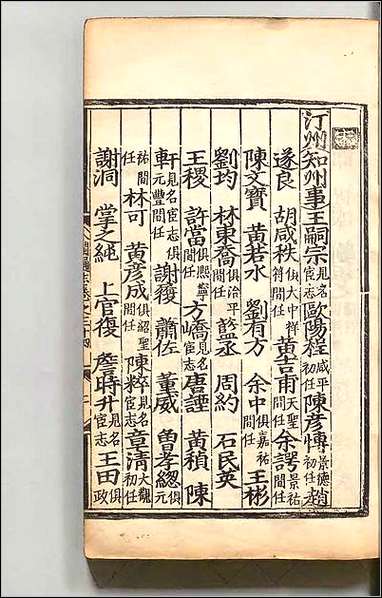 汀州知州事王嗣宗見名宦志歐陽程咸平初任陳彥慱景德初任趙
遂良 胡咸秩俱大中祥符間任黃吉甫天聖間任余諤景祐間任
陳文寶 黃若水 劉有方 余中俱嘉祐間任王彬
劉均 林東喬俱治平間任 周約 石民英
王稷 許當俱熙寧間任方嶠見名宦志唐諲 黃積 陳
軒見名宦志俱元豐間任謝䕶 蕭佐 董威 曾孝總俱元
祐間任林可 黃彥成俱紹聖間任陳粹見名宦志章清大觀初任
謝洞 掌之純 上官復 詹時升見名宦志王田俱政